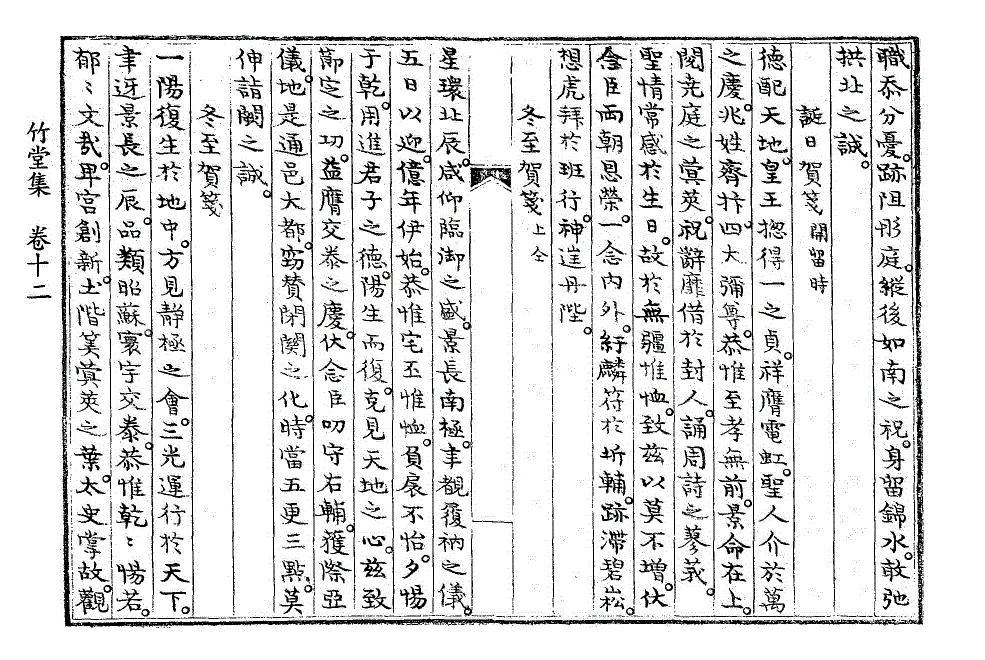 職忝分憂。跡阻彤庭。縱後如南之祝。身留錦水。敢弛
拱北之誠。
誕日賀箋 開留時
德配天地。皇王摠得一之貞。祥膺電虹。聖人介於萬
之慶。兆姓齊抃。四大彌尊。恭惟至孝無前。景命在上。
閱堯庭之蓂莢。祝辭靡借於封人。誦周詩之蓼莪。
聖情常感於生日。故於無疆惟恤。致玆以莫不增。伏
念臣兩朝恩榮。一念內外。紆麟符於圻輔。跡滯碧崧。
想虎拜於班行。神逞丹陛。
冬至賀箋 上仝
星環北辰。咸仰臨御之盛。景長南極。聿觀復衲之儀。
五日以迎。億年伊始。恭惟宅丕惟恤。負扆不怡。夕惕
于乾。用進君子之德。陽生而復。克見天地之心。玆致
節定之功。益膺交泰之慶。伏念臣叨守右輔。獲際亞
儀。地是通邑大都。窃贊閉關之化。時當五更三點。莫
伸詣闕之誠。
冬至賀箋
一陽復生於地中。方見靜極之會。三光運行於天下。
聿迓景長之辰。品類昭蘇。寰宇交泰。恭惟乾〻惕若。
郁〻文哉。卑宮創新。土階箕蓂莢之葉。太史掌故。觀
竹堂集 卷十二